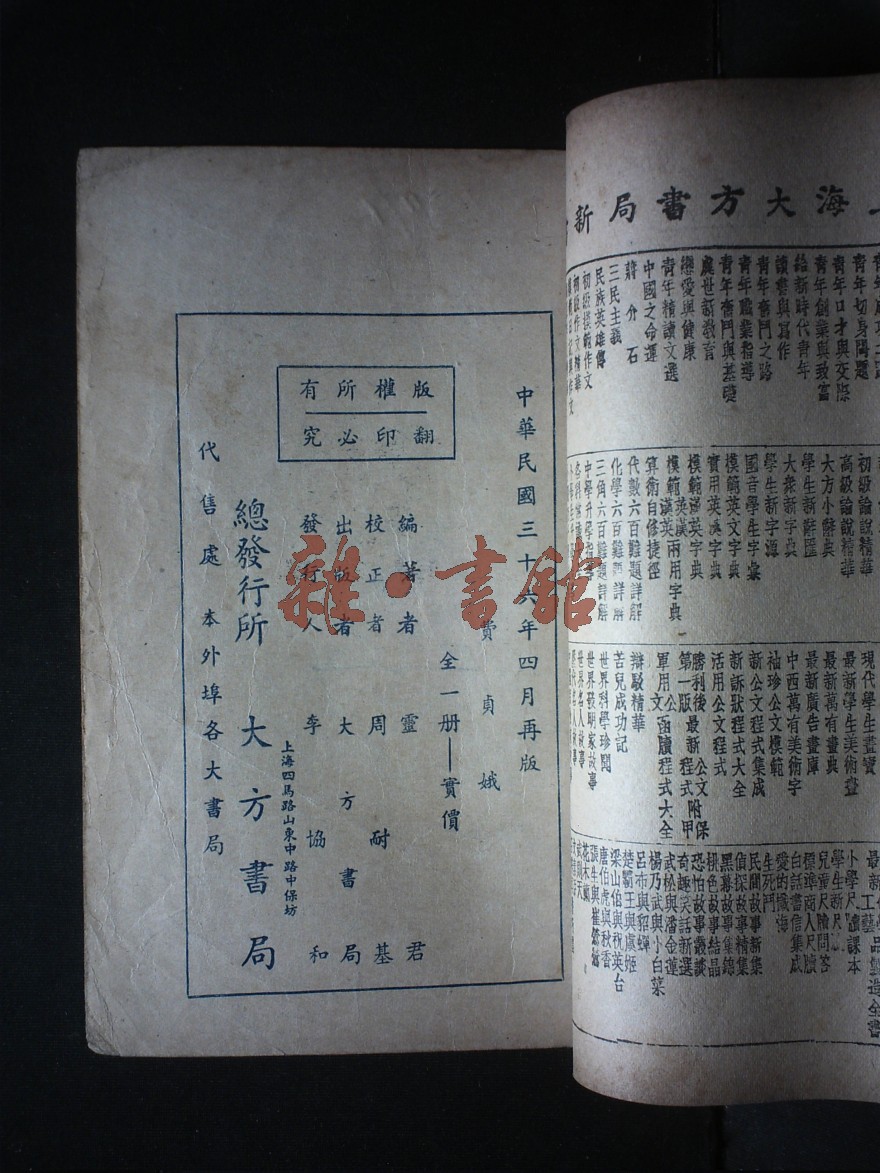 上海大方書局新
青年切身問題
青年口才與交際
青年創業與致富
給新時代青年
讀書與寫作
青年奮鬥之路
青年職業指導
青年奮鬥與基礎
處世新教育
戀愛與健康
青年精讀文選
中國之命運
蔣介石
三民主義
民族英雄傳
初級模範作文
初級作文精華
初級論說精華
高級論說精華
大方小辭典
學生新辭匯
大衆新字典
學生新字源
國音學生字彙
模範英文字典
實用英漢字典
模範漢英字典
模範英漢漢英兩用字典
算術自修捷徑
代數六百難題詳解
化學六百難題詳解
三角六百難題詳解
中學升學指導
現代學生畫寶
最新學生美術畫
最新萬有畫典
最新廣告畫庫
中西萬有美術字
袖珍公文模範
新公文程式集成
新訴狀程式大全
活用公文程式
勝利後第一版最新公文程式附保甲
軍用公文函牘程式大全
辯駁精華
苦兒成功記
世界科學珍聞
世界發明家故事
世界名人故事
小學尺牘課本
學生新尺牘
兒童尺牘問答
標準商人尺牘
白話書信集成
愛的懺悔
生死鬥
民間故事新集
偵探故事精集
黑幕故事集錦
桃色故事結晶
恐怕故事叢談
奇趣笑話新選
武松與潘金蓮
楊乃武與小白菜
呂布與貂蟬
楚霸王與虞姬
梁山伯與祝英台
唐伯虎與秋香
張生與崔鶯鶯
花木蘭
中華民國三十六年四月再版
費貞娥
全一册——實價
版權所有
翻印必究
編著者 靈君
校正者 周耐基
出版者 大方書局
發行人 李協和
上海四馬路山東中路中保坊
總發行所 大方書局
代售處 本外埠各大書局
雜·書館